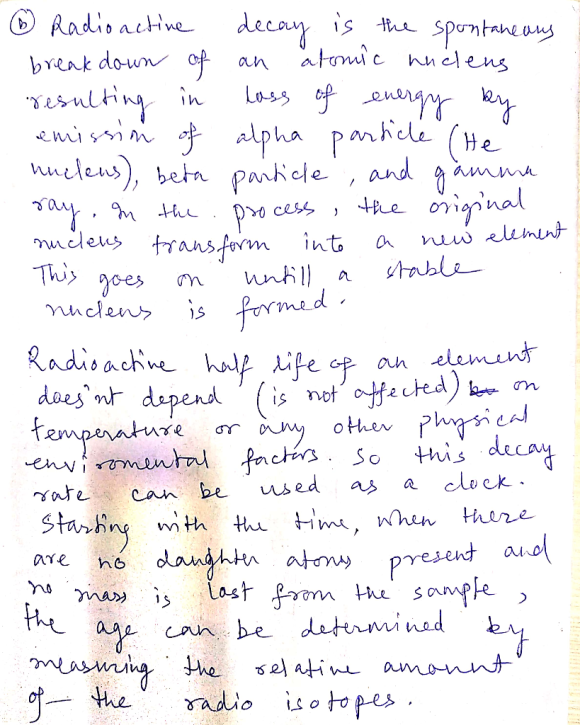 (b) Radioactive decay is the spontaneous
breakdown of an atomic nucleus
resulting in loss of energy by
emission of alpha particle (He
nucleus), beta particle, and gamma
ray. In the process, the original
nucleus transform into a new element
This goes on untill a stable
nucleus is formed.
Radioactive half life of an element
does'nt depend (is not affected) on
temperature or any other physical
enviromental factors. So this decay
rate can be used as a clock.
Starting with the time, when there
are no daughter atoms present and
no mass is lost from the sample,
the age can be determined by
measuring the relative amount
of the radio isotopes.